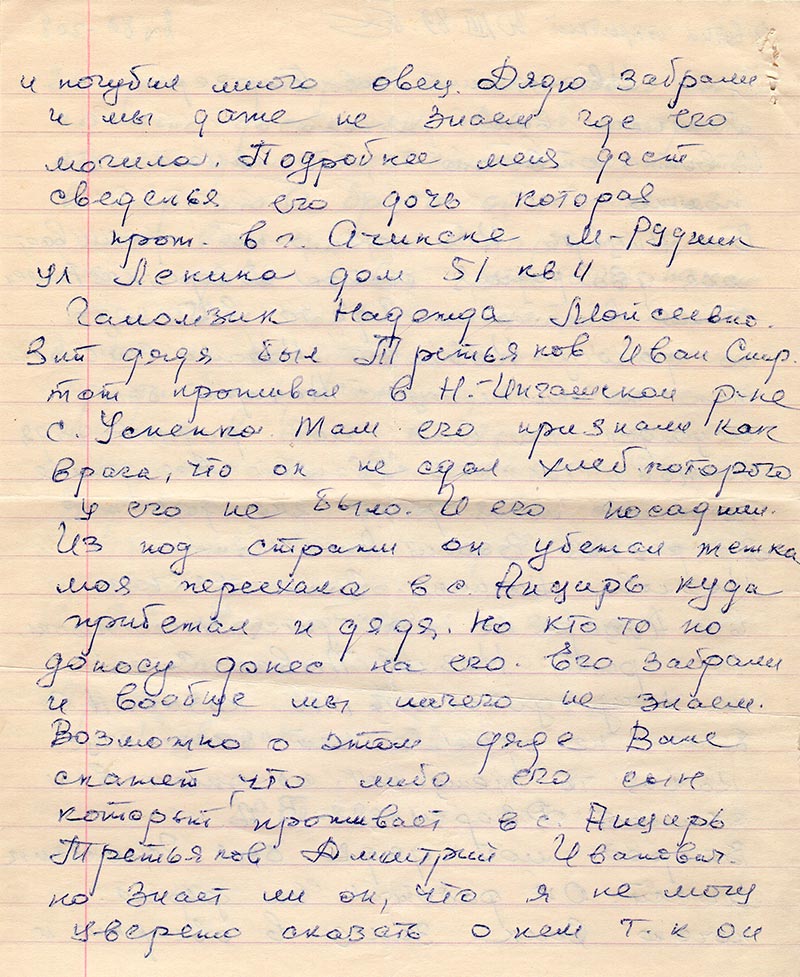 и погубил много овец. Дядю забрали
и мы даже не знаем где его
могила. Подробнее меня даст
сведенья его дочь которая
прож. в г. Ачинске м-Рудник
ул Ленина дом 51 кв 11
Надежда Мойсеевна.
дядя был Третьяков Иван Спир.
тот проживал в Н.-Ингашском р-не
с. Успенка. Там его признали как
врага, что он не сдал хлеб которого
у его не было. И его посадили.
Из под стражи он убежал тетка
моя переехала в с. Анцирь куда
прибежал и дядя. Но кто то по
доносу донес на его. Его забрали
и вообще мы ничего не знаем.
Возможно о этом дяде Ване
скажет, что либо его сын
который проживает в с. Анцирь
Третьяков Дмитрий Иванович.
но знает ли он, что я не могу
уверено сказать о нем т. к он